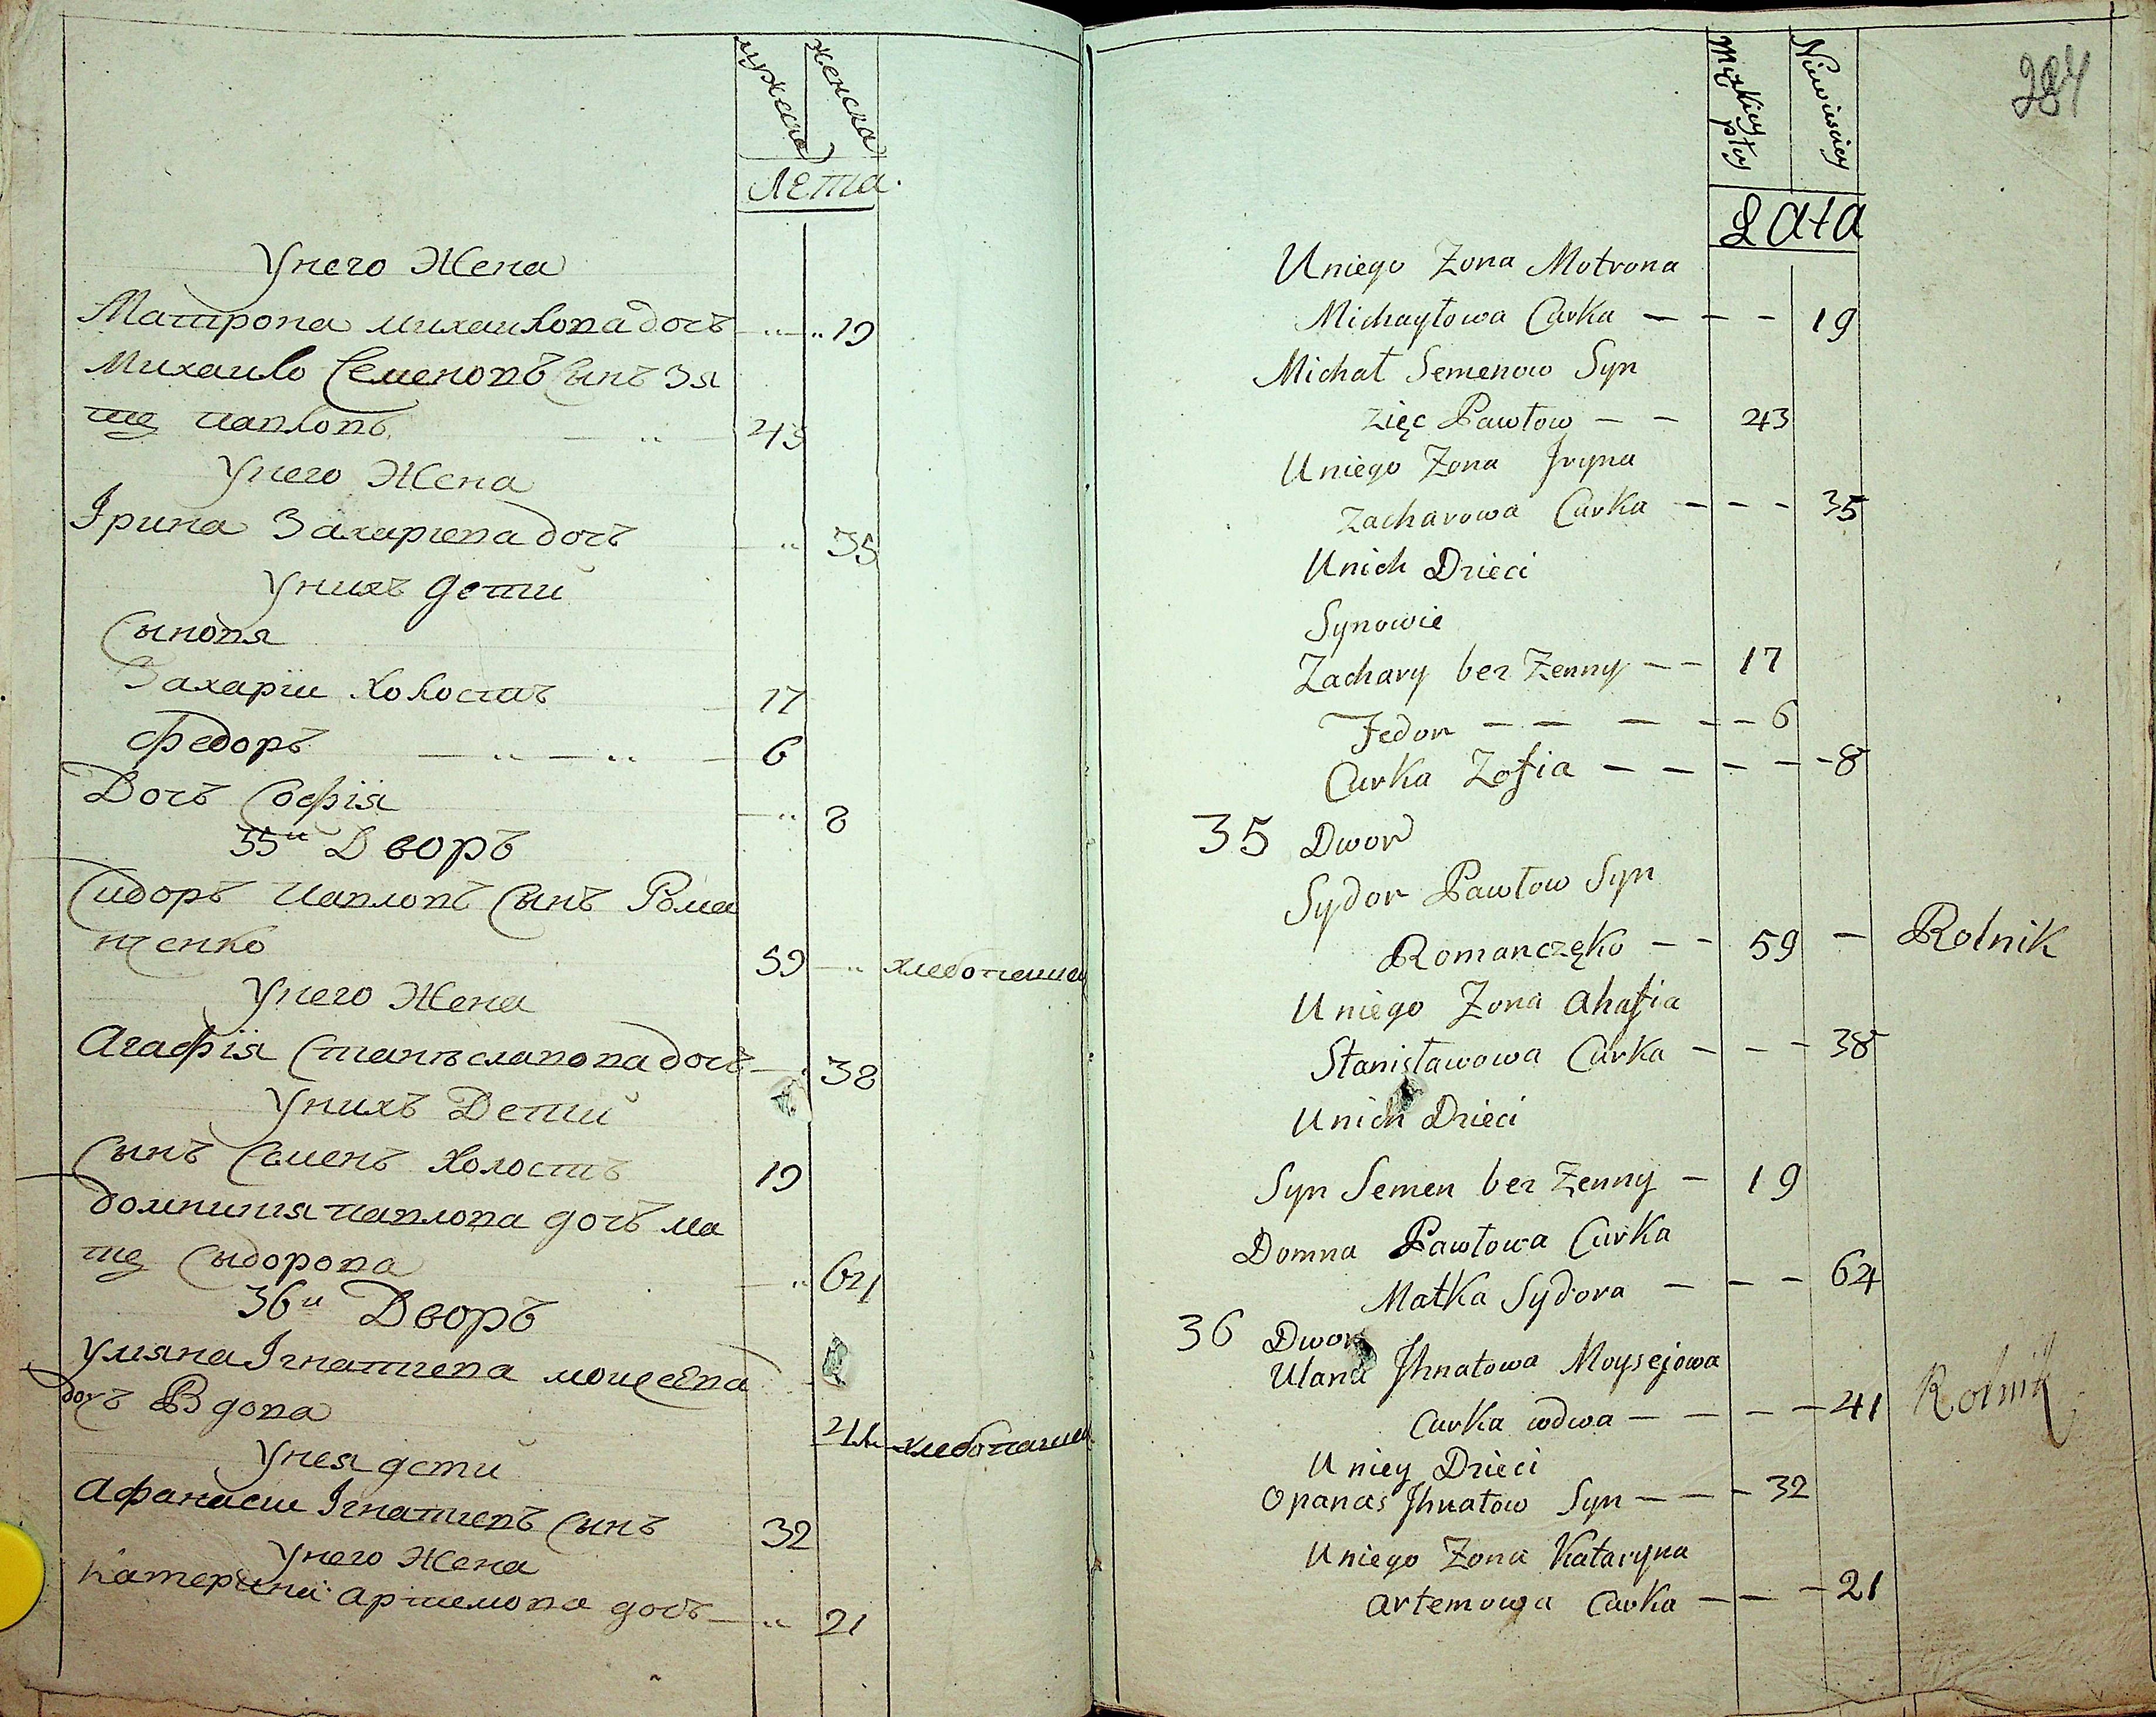 мужеска
женска
Лета.
Унего Жена
Матрона михаилова дочъ 19
Михаило Семеновъ Сынъ Зя
ть павловъ 43
Унего Жена
Ірина Захариева дочъ 35
Унихъ дети
Сыновя
Захарїи холостъ 17
Федоръ 6
Дочъ Софїя 8
35и Дворъ
Сидоръ павловъ Сынъ Рома
нченко 59 хлебопашец
Унего Жена
Агафїя Станиславова дочъ 38
Унихъ Дети
Сынъ Семенъ холостъ 19
домникия павлова дочъ ма
ть Сыдорова 64
36и Дворъ
Уляна Ігнатиева мойсеева
дочъ Вдова 41 хлебопашец
Унея дети
Афанасии Ігнатиевъ Сынъ 32
Унего Жена
Катерина артемова дочъ 21
Męzkiey płcy
Niewieściey
Lata
284
Uniego Zona Motrona
Michayłowa Curka — — — 19
Michał Semenow Syn
zięc Pawłow — — 23
Uniego Zona Jryna
Zacharowa Curka — — — 35
Unich Dzieci
Synowie
Zachary bez Zenny — — 17
Fedor — — — — — 6
Curka Zofia — — — — — 8
35 Dwor
Sydor Pawłow Syn
Romanczęko — — 59 — Rolnik
Uniego Zona Ahafia
Stanisławowa Curka — — — 38
Unich Dzieci
Syn Semen bez Zenny — 19
Domna Pawłowa Curka
Matka Sydora — — — 64
36 Dwor
Ulana Jhnatowa Moysejowa
Curka wdwa — — — — 41 Rolnik
Uniey Dzieci
Opanas Jhnatow Syn — — — 32
Uniego Zona Kataryna
Artemowa Curka — — — 21